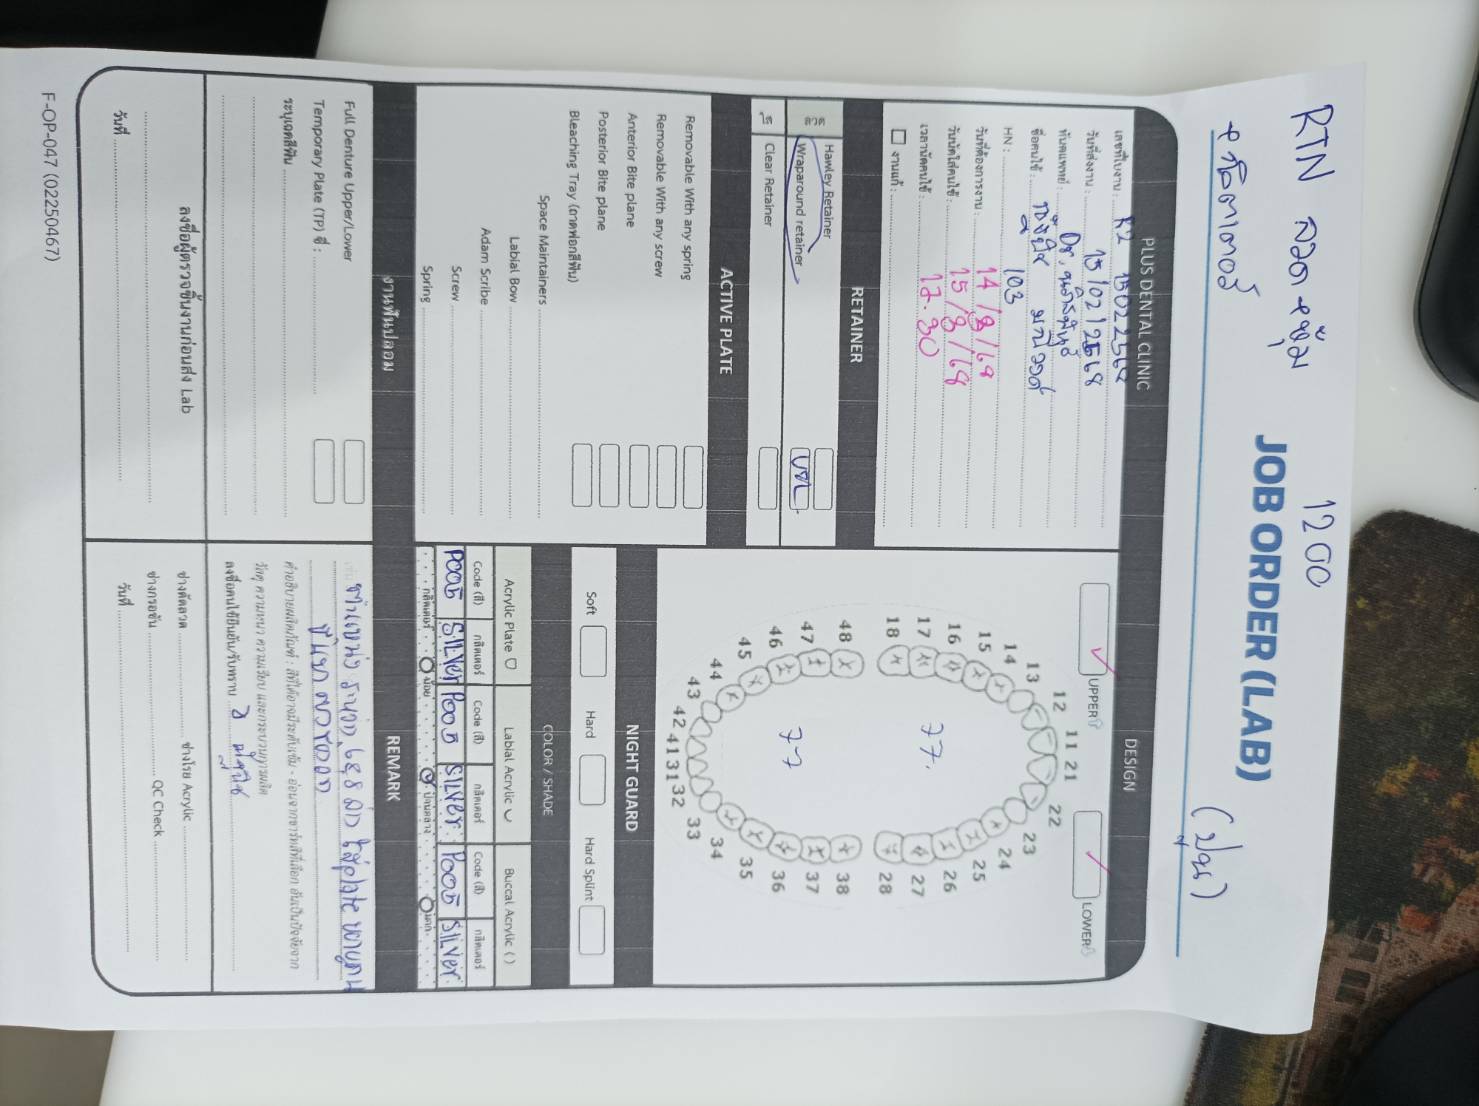 RTN ลวด + ขุ้ม 1200
+ กลิตเตอร์
(ปุ่น)
JOB ORDER (LAB)
PLUS DENTAL CLINIC
เลขที่ใบงาน : R2 15022568
วันที่ส่งงาน : 15/02/2568
ทันตแพทย์ : Dr.
ชื่อคนไข้ :
HN : 103
วันที่ต้องการงาน : 14/8/68
วันนัดใส่คนไข้ : 15/8/68
เวลานัดคนไข้ : 12.30
งานแก้ :
RETAINER
ลวด
Hawley Retainer
Wraparound retainer บน
ใส
Clear Retainer
ACTIVE PLATE
Removable With any spring
Removable With any screw
Anterior Bite plane
Posterior Bite plane
Bleaching Tray (ถาดฟอกสีฟัน)
Space Maintainers
Labial Bow
Adam Scribe
Screw
Spring
งานฟันปลอม
Full Denture Upper/Lower
Temporary Plate (TP) ซี่ :
ระบุเฉดสีฟัน
ลงชื่อผู้ตรวจชิ้นงานก่อนส่ง Lab
วันที่
DESIGN
UPPER
LOWER
11 21
12 22
13 23
14 24
15 25
16 26
17 77. 27
18 28
48 38
47 77 37
46 36
45 35
44 34
43 33
42 41 31 32
NIGHT GUARD
Soft Hard Hard Splint
COLOR / SHADE
Acrylic Plate Labial Acrylic Buccal Acrylic ( )
Code (สี) กลิตเตอร์ Code (สี) กลิตเตอร์ Code (สี) กลิตเตอร์
P005 SILVER P005 SILVER P005 SILVER
กลิตเตอร์ น้อย ปานกลาง มาก
REMARK
ตำแหน่ง ระหว่าง ใส่plate
คำอธิบายผลิตภัณฑ์ : สีที่ได้อาจมีระดับเข้ม - อ่อนจากชาร์ทสีที่เลือก อันเป็นปัจจัยจาก
วัสดุ ความหนา ความเรียบ และกระบวนการผลิต
ลงชื่อคนไข้ยืนยัน/รับทราบ
ช่างดัดลวด ช่างโรย Acrylic
ช่างกรอขัด QC Check
วันที่
F-OP-047 (02250467)